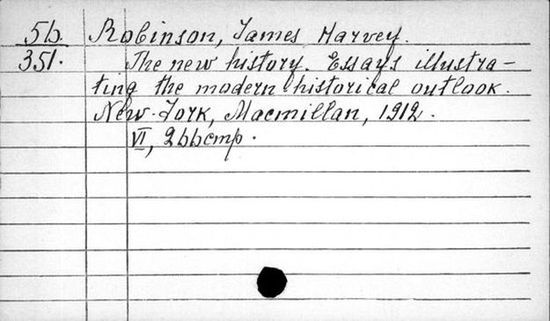 56 Robinson, James Harvey.
351. The new history. Essays illustra-
ting the modern historical outlook.
New-York, Macmillan, 1912.
VI, 266 стр.